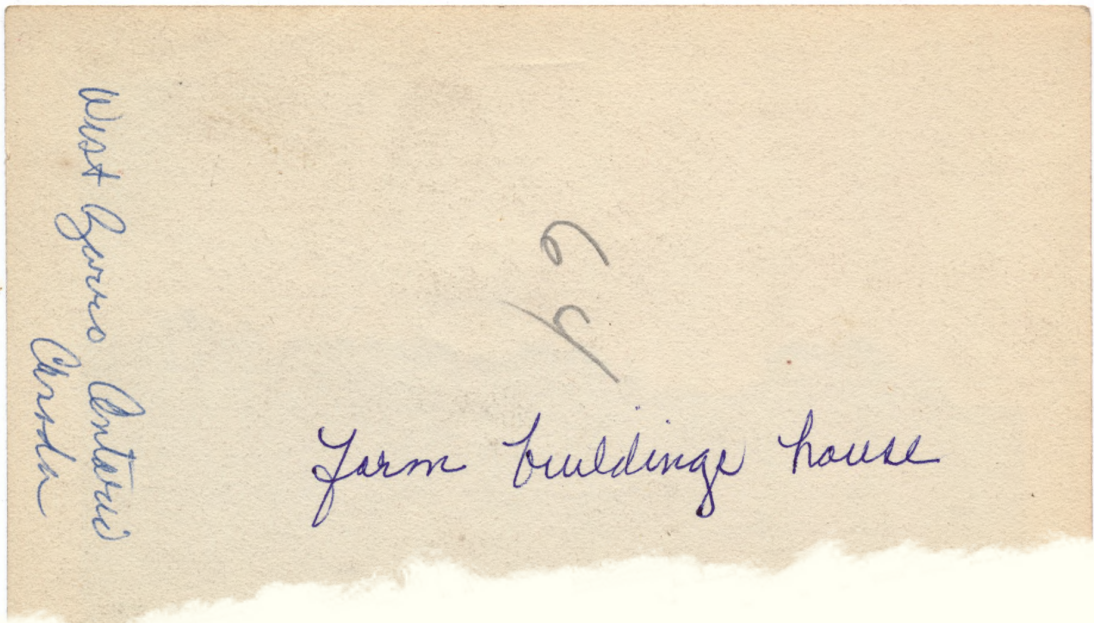 West Zorra Ontario
Canada
Farm buildings house